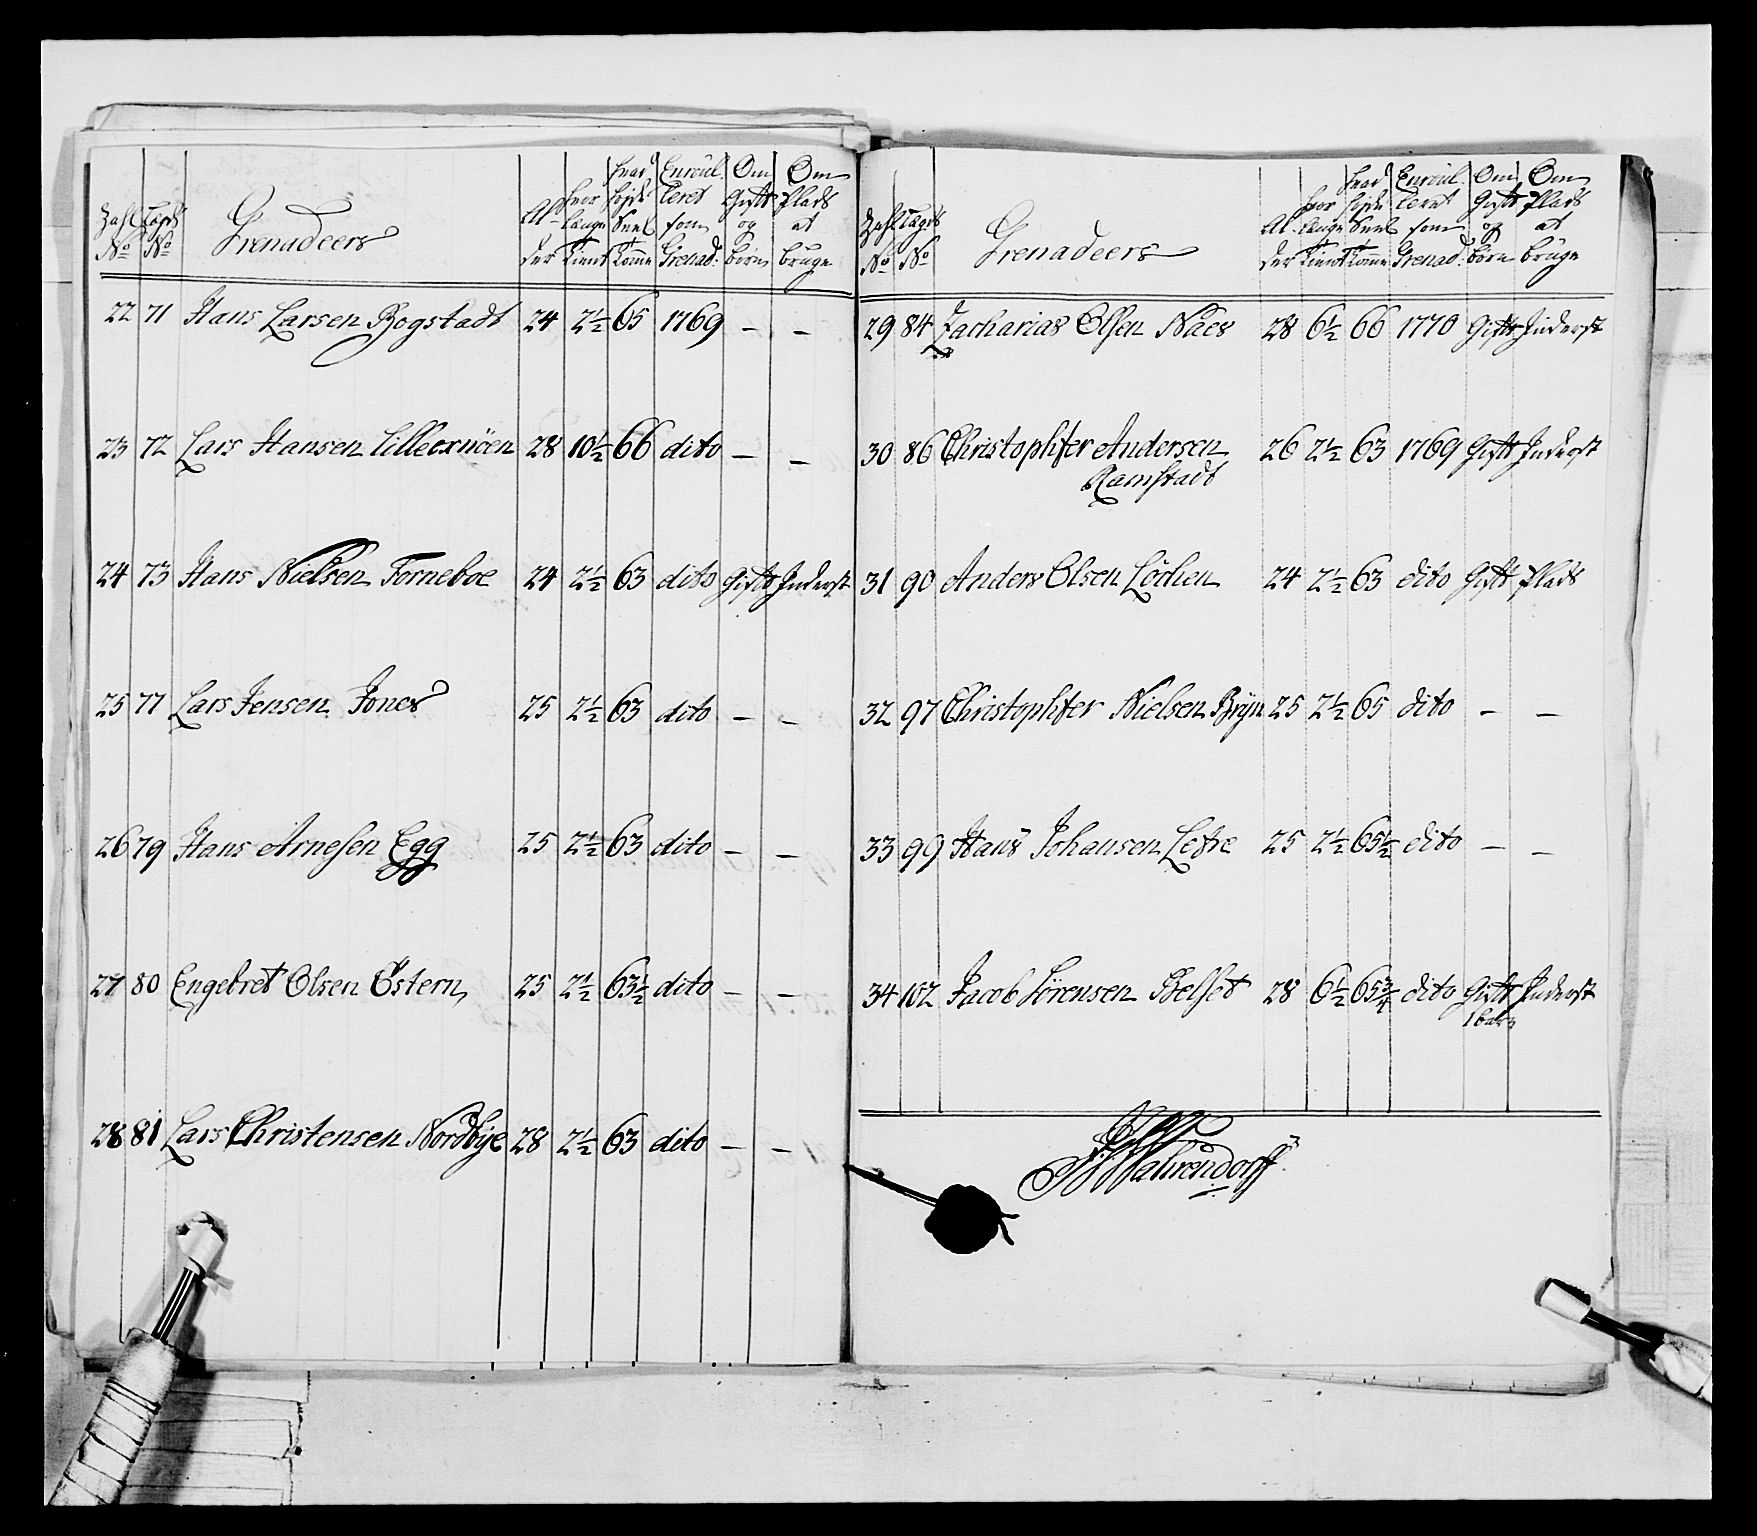 Zahl No | Lægds No | Grenadeers | Alder | hvor Længe Tient | hvad høyde Snees Tomme | Enroulleret som Grenad: | Om Gift og børn | Om Plads at brüge
22 71 Hans Larsen Bogstadt 24 2½ 65 1769 — —
23 72 Lars Hansen 28 10½ 66 dito — —
24 73 Hans Nielsen Forneboe 24 2½ 63 dito Gift Inderst
25 77 Lars Jensen Jones 25 2½ 63 dito — —
26 79 Hans Arnesen Egg 25 2½ 63 dito — —
27 80 Engebret Olsen Östern 25 2½ 63½ dito — —
28 81 Lars Christensen Nordbÿe 28 2½ 63 dito — —
Zahl No | Lægds No | Grenadeers | Alder | hvor Længe Tient | hvad høyde Tomme | Enroul:leret som Grenad: | Om Gift og børn | Om Plads at brüge
29 84 Zacharias Olsen Næs 28 6½ 66 1770 Gift Inderst
30 86 Christopher Andersen 26 2½ 63 1769 Gift Inderst
Ramstadt
31 90 Anders Olsen Löchen 24 2½ 63 dito Gift Plads
32 97 Christopher Nielsen Brÿn 25 2½ 65 dito — —
33 99 Hans Johansen Lefre 25 2½ 65½ dito — —
34 102 Jacob Sörensen Belset 28 6½ 65¾ dito Gift Inderst
1 barn
Wahrendorff